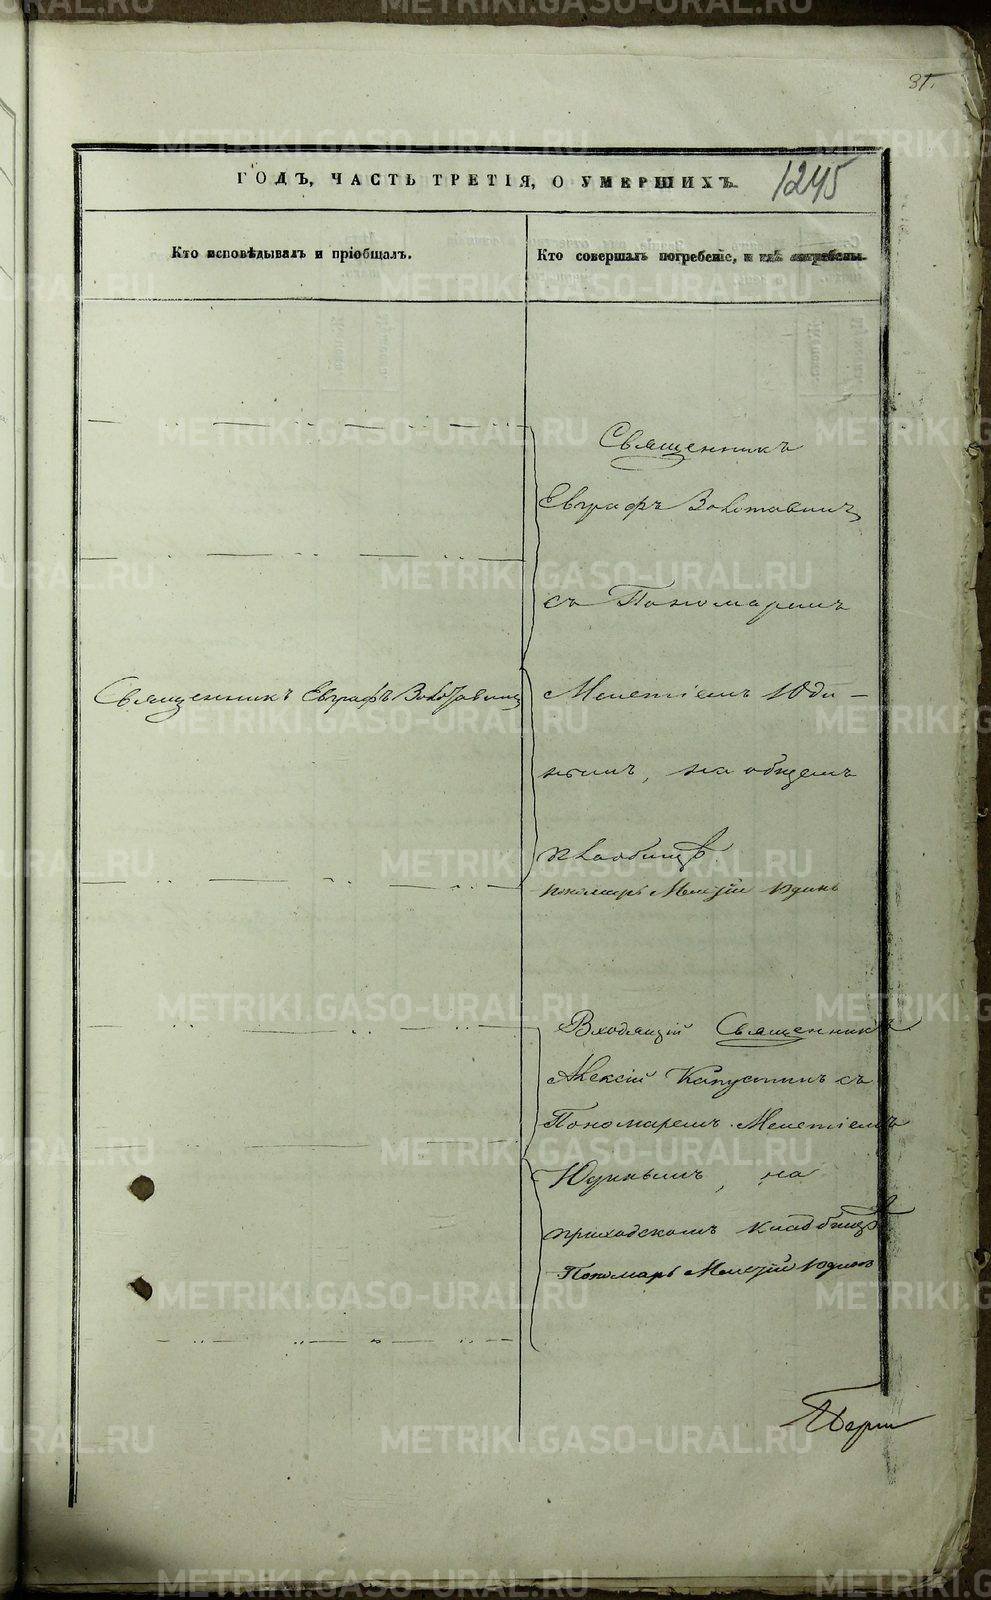 81.
ГОДЪ, ЧАСТЬ ТРЕТІЯ, О УМЕРШИХЪ.
1245
Кто исповѣдывалъ и пріобщалъ.
Кто совершалъ погребеніе, и гдѣ погребены.
Священникъ Евграфъ
Священникъ
Евграфъ
съ Пономаремъ
Мелетіемъ Юди-
нымъ, на общемъ
кладбищѣ
пономарь Мелетій Юдинъ
Входящій Священникъ
Алексій Капустинъ съ
Пономаремъ Мелетіемъ
Юдинымъ, на
приходскомъ кладбищѣ
Пономарь Мелетій Юдинъ
METRIKI.GASO-URAL.RU